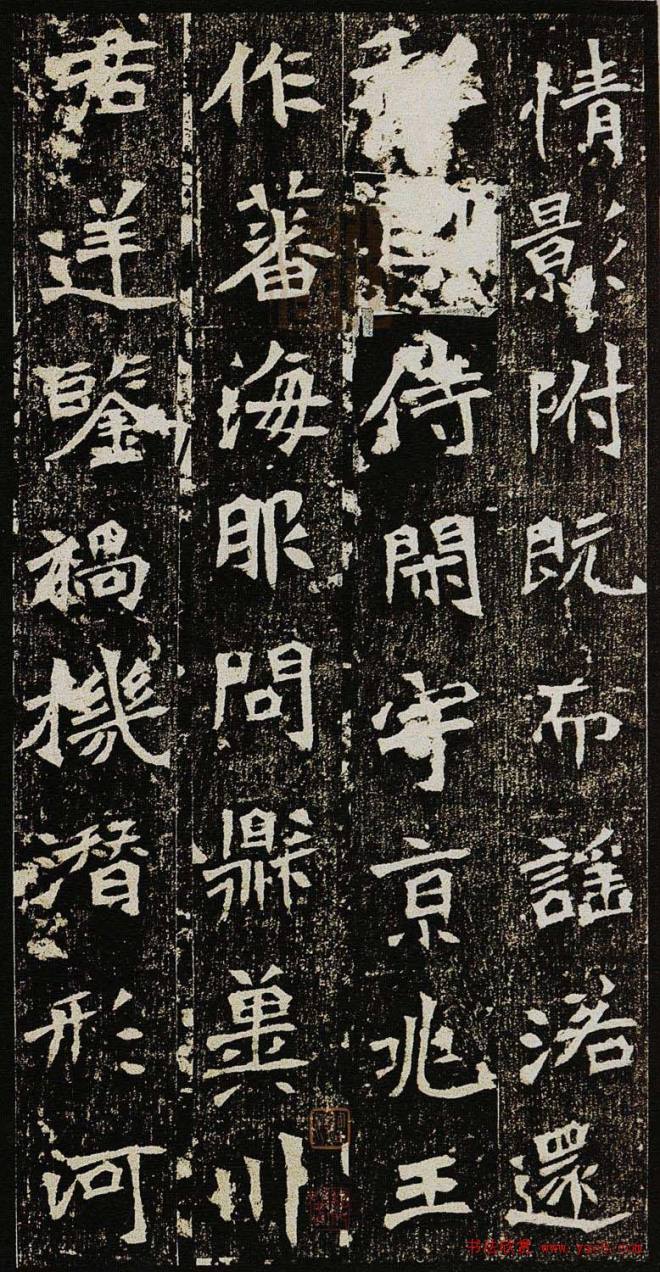 情影附既而謡洛還
侍閑守京兆王
作蕃海服問鼎冀川
君逆鑒禍機潛形河
书法欣赏 www.yac8.com